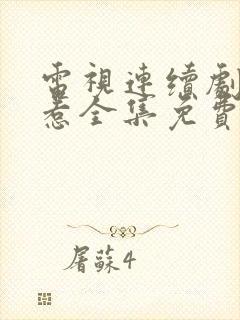 電視連續劇
惹全集免費
屠蘇4